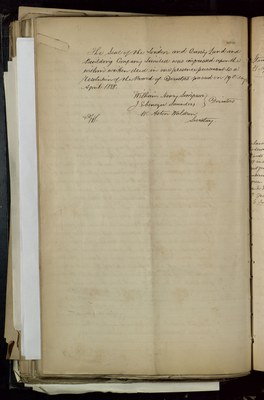 The Seal of the London and County Land and
Building Company Limited was impressed upon the
within written deed in our presence pursuant to a
Resolution of the Board of Directors passed on 19th day
April 1888.
William Henry
J Ebenezer Saunders
Directors
Secretary